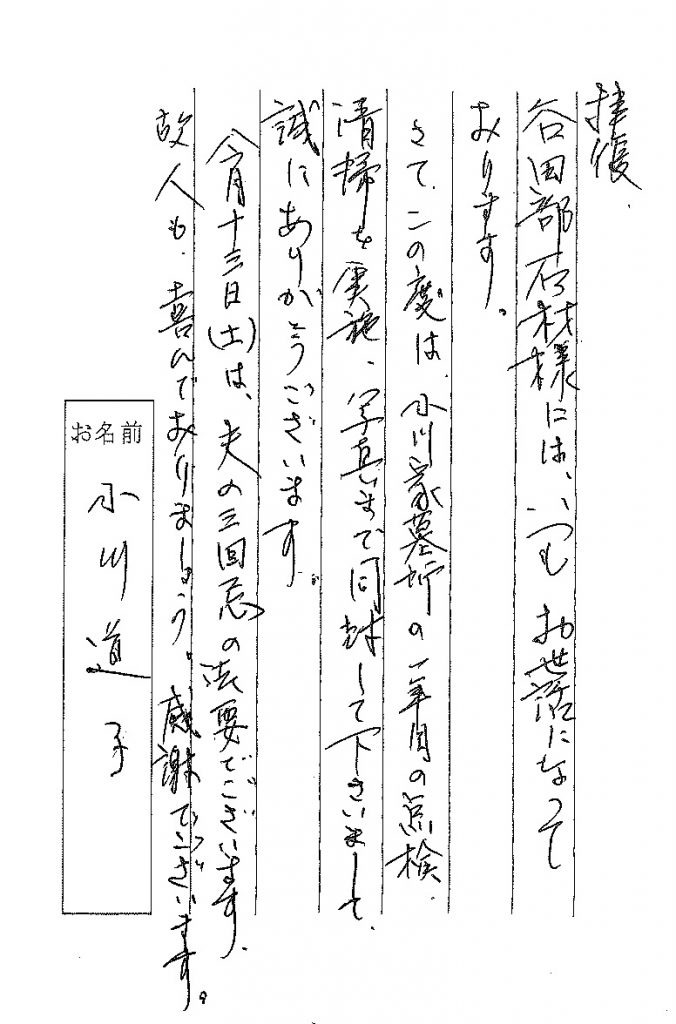 拝復、
谷田部石材様には、いつもお世話になって
おります。
さて、この度は、小川家墓所の一年目の点検、
清掃を実施、写真まで同封して下さいまして、
誠にありがとうございます。
六月十三日(土)は、夫の三回忌の法要でございます、
故人も、喜んでおりましょう。感謝でございます。
お名前
小川道子